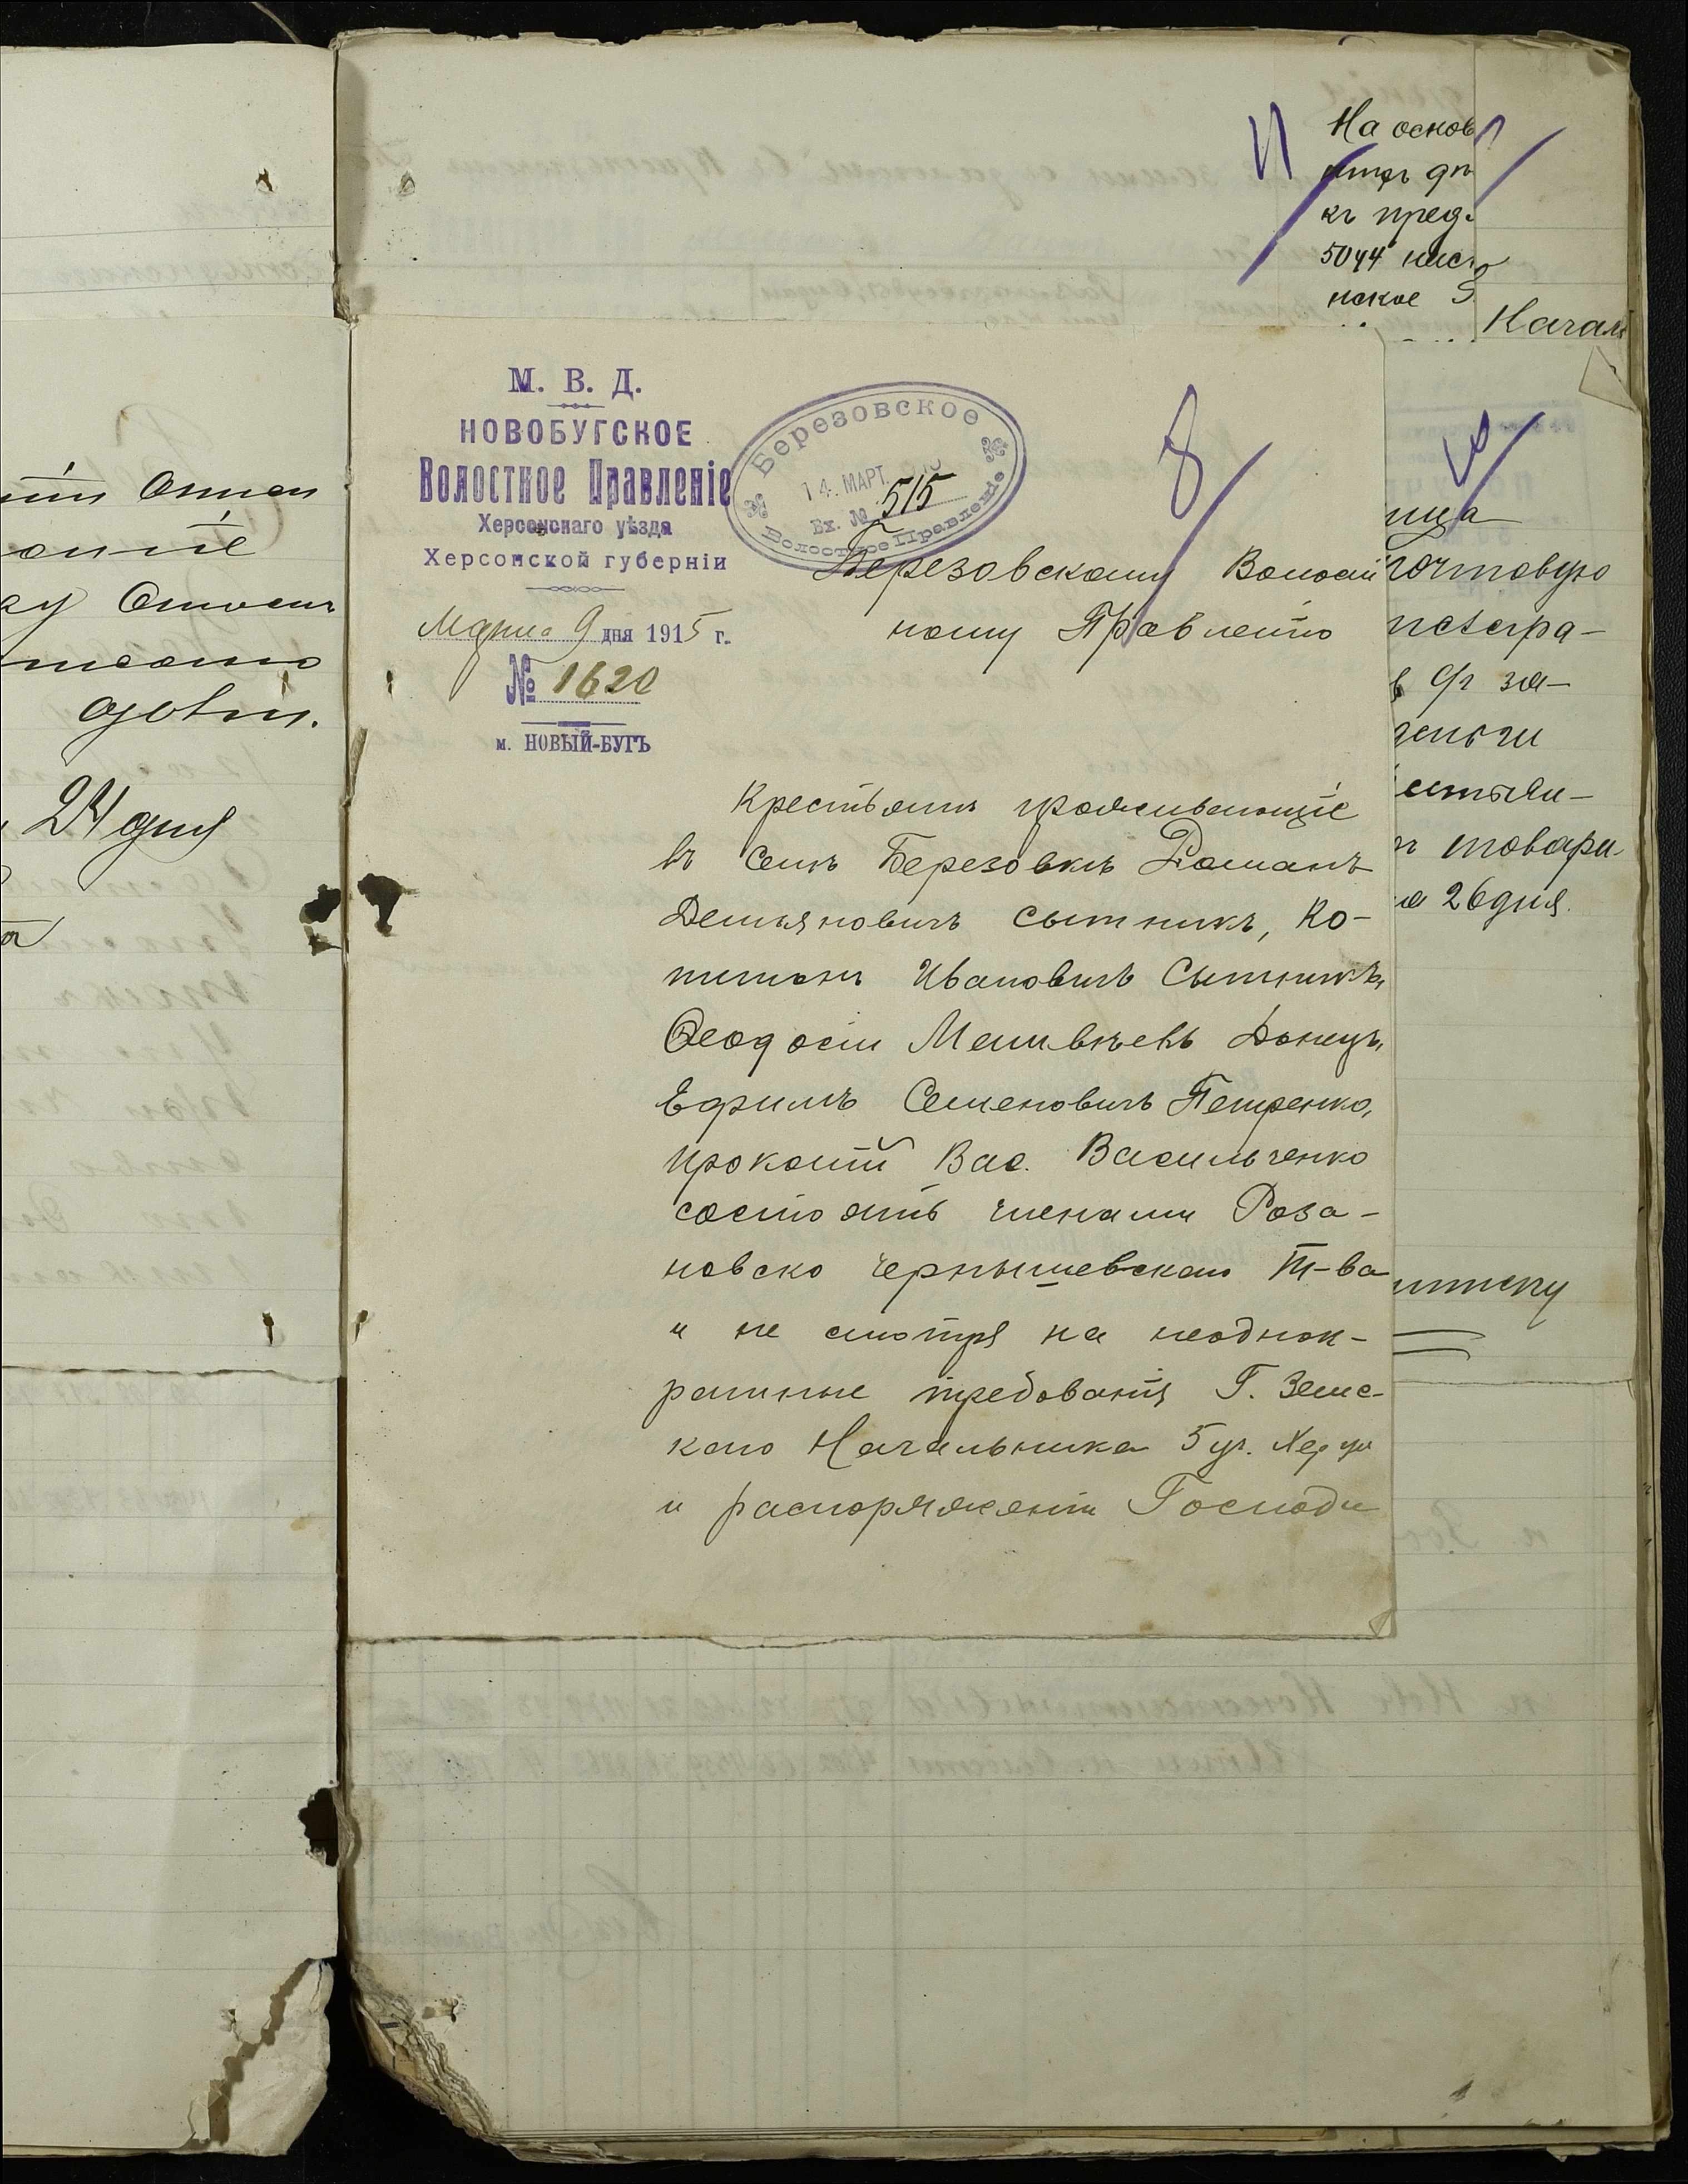 М. В. Д.
НОВОБУГСКОЕ
Волостное Правленіе
Херсонскаго уѣзда
Херсонской губерніи
Марта 9 дня 1915 г.
№ 1620
м. НОВЫЙ-БУГЪ
Березовское
14. МАРТ.
Вх. № 515
Волостное Правленіе
8
Березовскому Волост
ному Правленію
Крестьяне проживающіе
въ селѣ Березовкѣ Романъ
Демьяновичъ Сытникъ, Ко-
Ивановичъ Сытникъ,
Ѳеодосій Матвѣевъ Донецъ,
Ефимъ Семеновичъ Петренко,
Прокопій Вас. Васильченко
состоятъ членами Роза-
новско Чернышевскаго Т-ва
и не смотря на неоднок-
ратные требованія Г. Земс-
каго Начальника 5 уч. Хер. у.
и распоряженіи Господи
На основ
къ пред.
5044
нское
Начал
ица
почтовую
за-
деньги
товари
26 дня.
24 дня